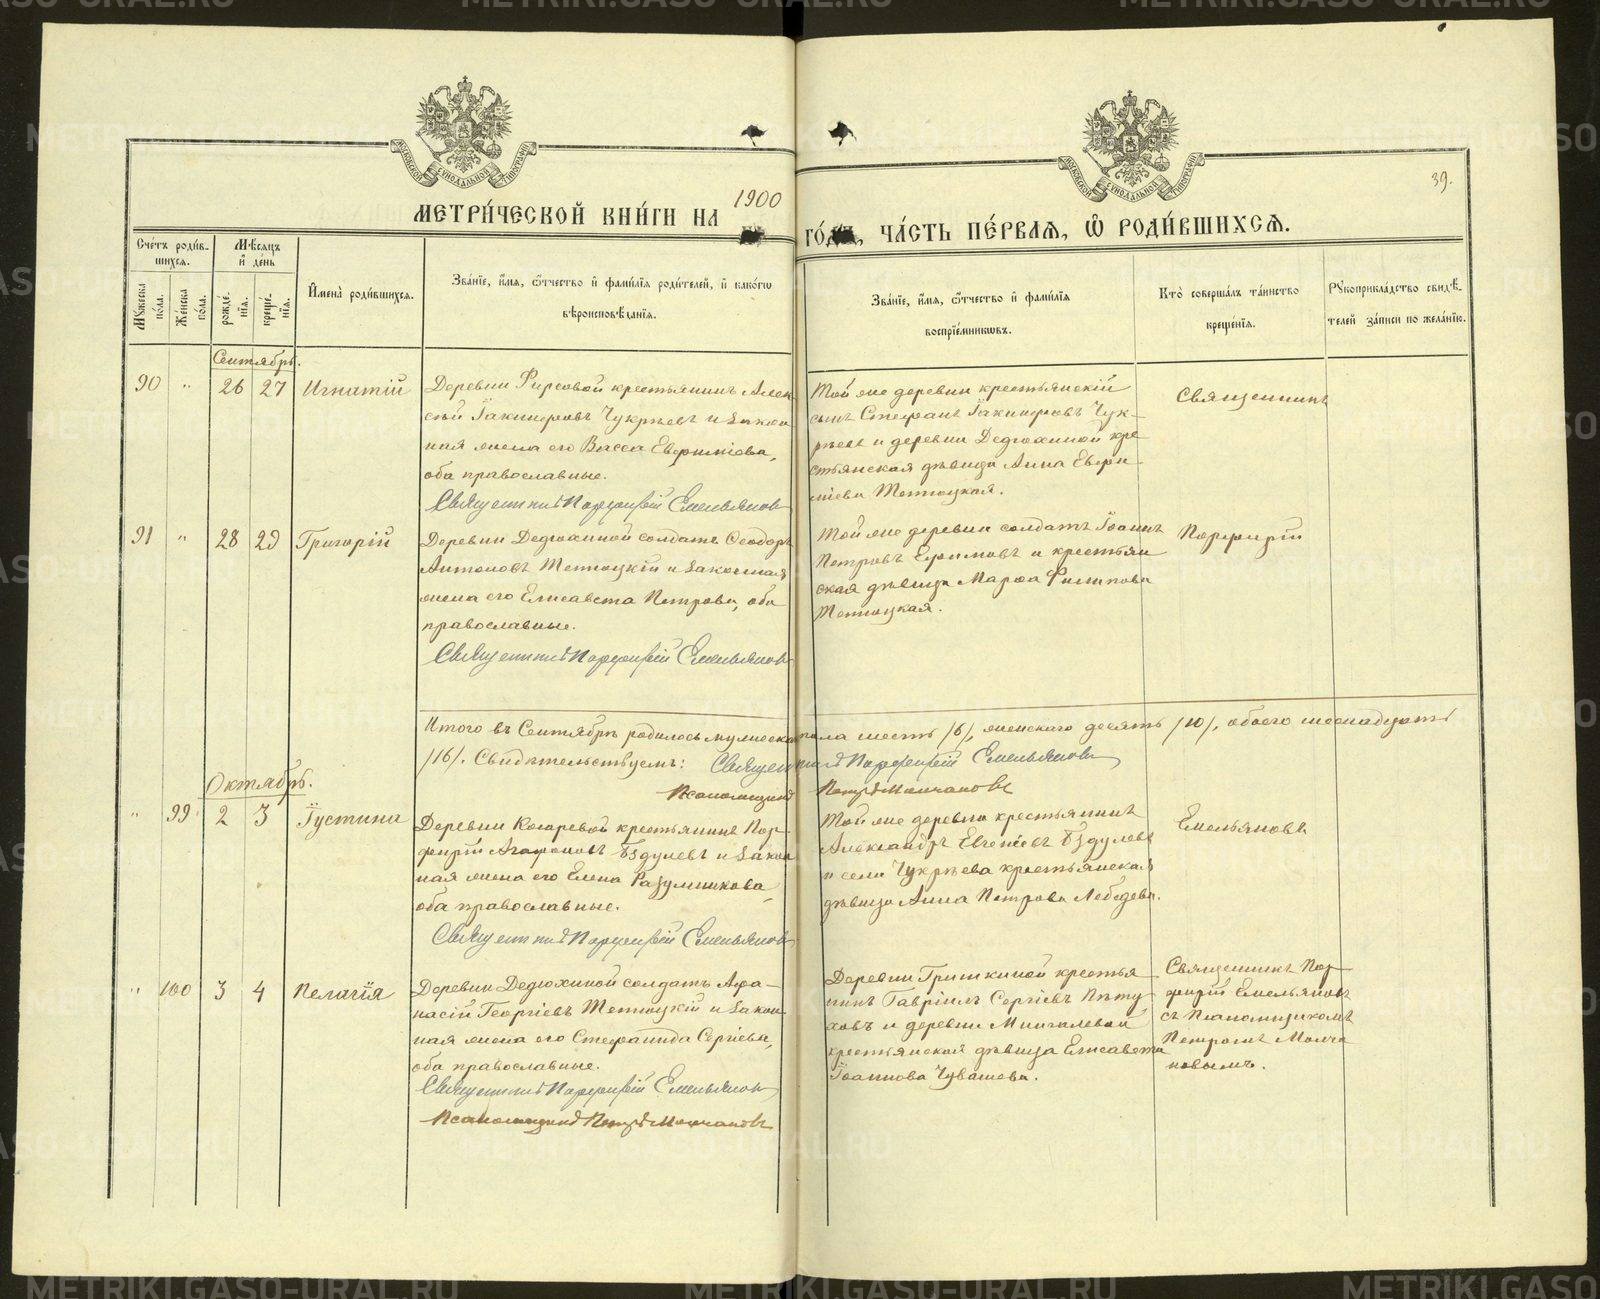 METRIKI.GASO-URAL.RU
МОСКОВСКОЙ СУНОДАЛЬНОЙ ТИПОГРАФІИ
МОСКОВСКОЙ СУНОДАЛЬНОЙ ТИПОГРАФІИ
39.
МЕТРИ́ЧЕСКОЙ КНИ́ГИ НА 1900
ГО́ДЪ, ЧА́СТЬ ПЕ́РВАѦ, Ѽ РОДИ́ВШИХСѦ.
Сче́тъ роди́вшихсѧ.
Мꙋжеска по́ла.
Же́нска по́ла.
Мѣ́сѧцъ и҆ де́нь
рожде́нїѧ.
креще́нїѧ.
И҆мена̀ роди́вшихсѧ.
Зва́нїе, и҆́мѧ, ѻ҆́тчество и҆ фами́лїѧ роди́телей, и҆ како́гѡ
вѣроисповѣ́данїѧ.
Зва́нїе, и҆́мѧ, ѻ҆́тчество и҆ фами́лїѧ
воспрїе́мникѡвъ.
Кто̀ соверша́лъ та́инство
креще́нїѧ.
Рꙋкоприкла́дство свидѣ́телей за́писи по жела́нїю.
Сентябрь.
90 " 26 27 Игнатій
Деревни Фирсовой крестьянинъ Алек
сѣй Іакинфовъ Чукрѣевъ и закон
ная жена его Васса Евфиміова,
оба православные.
Священникъ Порфирій Емельяновъ
Той же деревни крестьянскій
сынъ Стефанъ Іакинфовъ Чук–
рѣевъ и деревни Дедюхиной кре
стьянская дѣвица Анна Евфи
міева Тетюцкая.
Священникъ
91 " 28 29 Григорій
Деревни Дедюхиной солдатъ Ѳеодоръ
Антоновъ Тетюцкій и законная
жена его Елисавета Петрова, оба
православные.
Священникъ Порфирій Емельяновъ
Той же деревни солдатъ Іоаннъ
Петровъ Ефимовъ и крестьян
ская дѣвица Марѳа Филипова
Тетюцкая.
Порфирій
Итого въ Сентябрѣ родилось мужеска пола шесть /6/, женскаго десять /10/, обоего шеснадцать
/16/. Свидѣтельствуемъ: Священникъ Порфирій Емельяновъ
Псаломщикъ Петръ Молчановъ
Октябрь.
" 99 2 3 Іустина
Деревни Косаревой крестьянинъ Пор–
фирій Агафоновъ Бздулевъ и закон
ная жена его Елена Разумникова,
оба православные.
Священникъ Порфирій Емельяновъ
Той же деревни крестьянинъ
Александръ Евгеніевъ Бздулевъ
и села Чукрѣева крестьянская
дѣвица Анна Петрова Лебедева.
Емельяновъ
" 100 3 4 Пелагія
Деревни Дедюхиной солдатъ Афа–
насій Георгіевъ Тетюцкій и закон
ная жена его Стефанида Сергіева,
оба православные.
Священникъ Порфирій Емельяновъ
Псаломщикъ Петръ Молчановъ
Деревни Гришкиной крестья
нинъ Гавріилъ Сергіевъ Пѣту
ховъ и деревни Мингалевой
крестьянская дѣвица Елисавета
Іоаннова Чувашева.
Священникъ Пор–
фирій Емельяновъ
съ Псаломщикомъ
Петромъ Молча
новымъ.